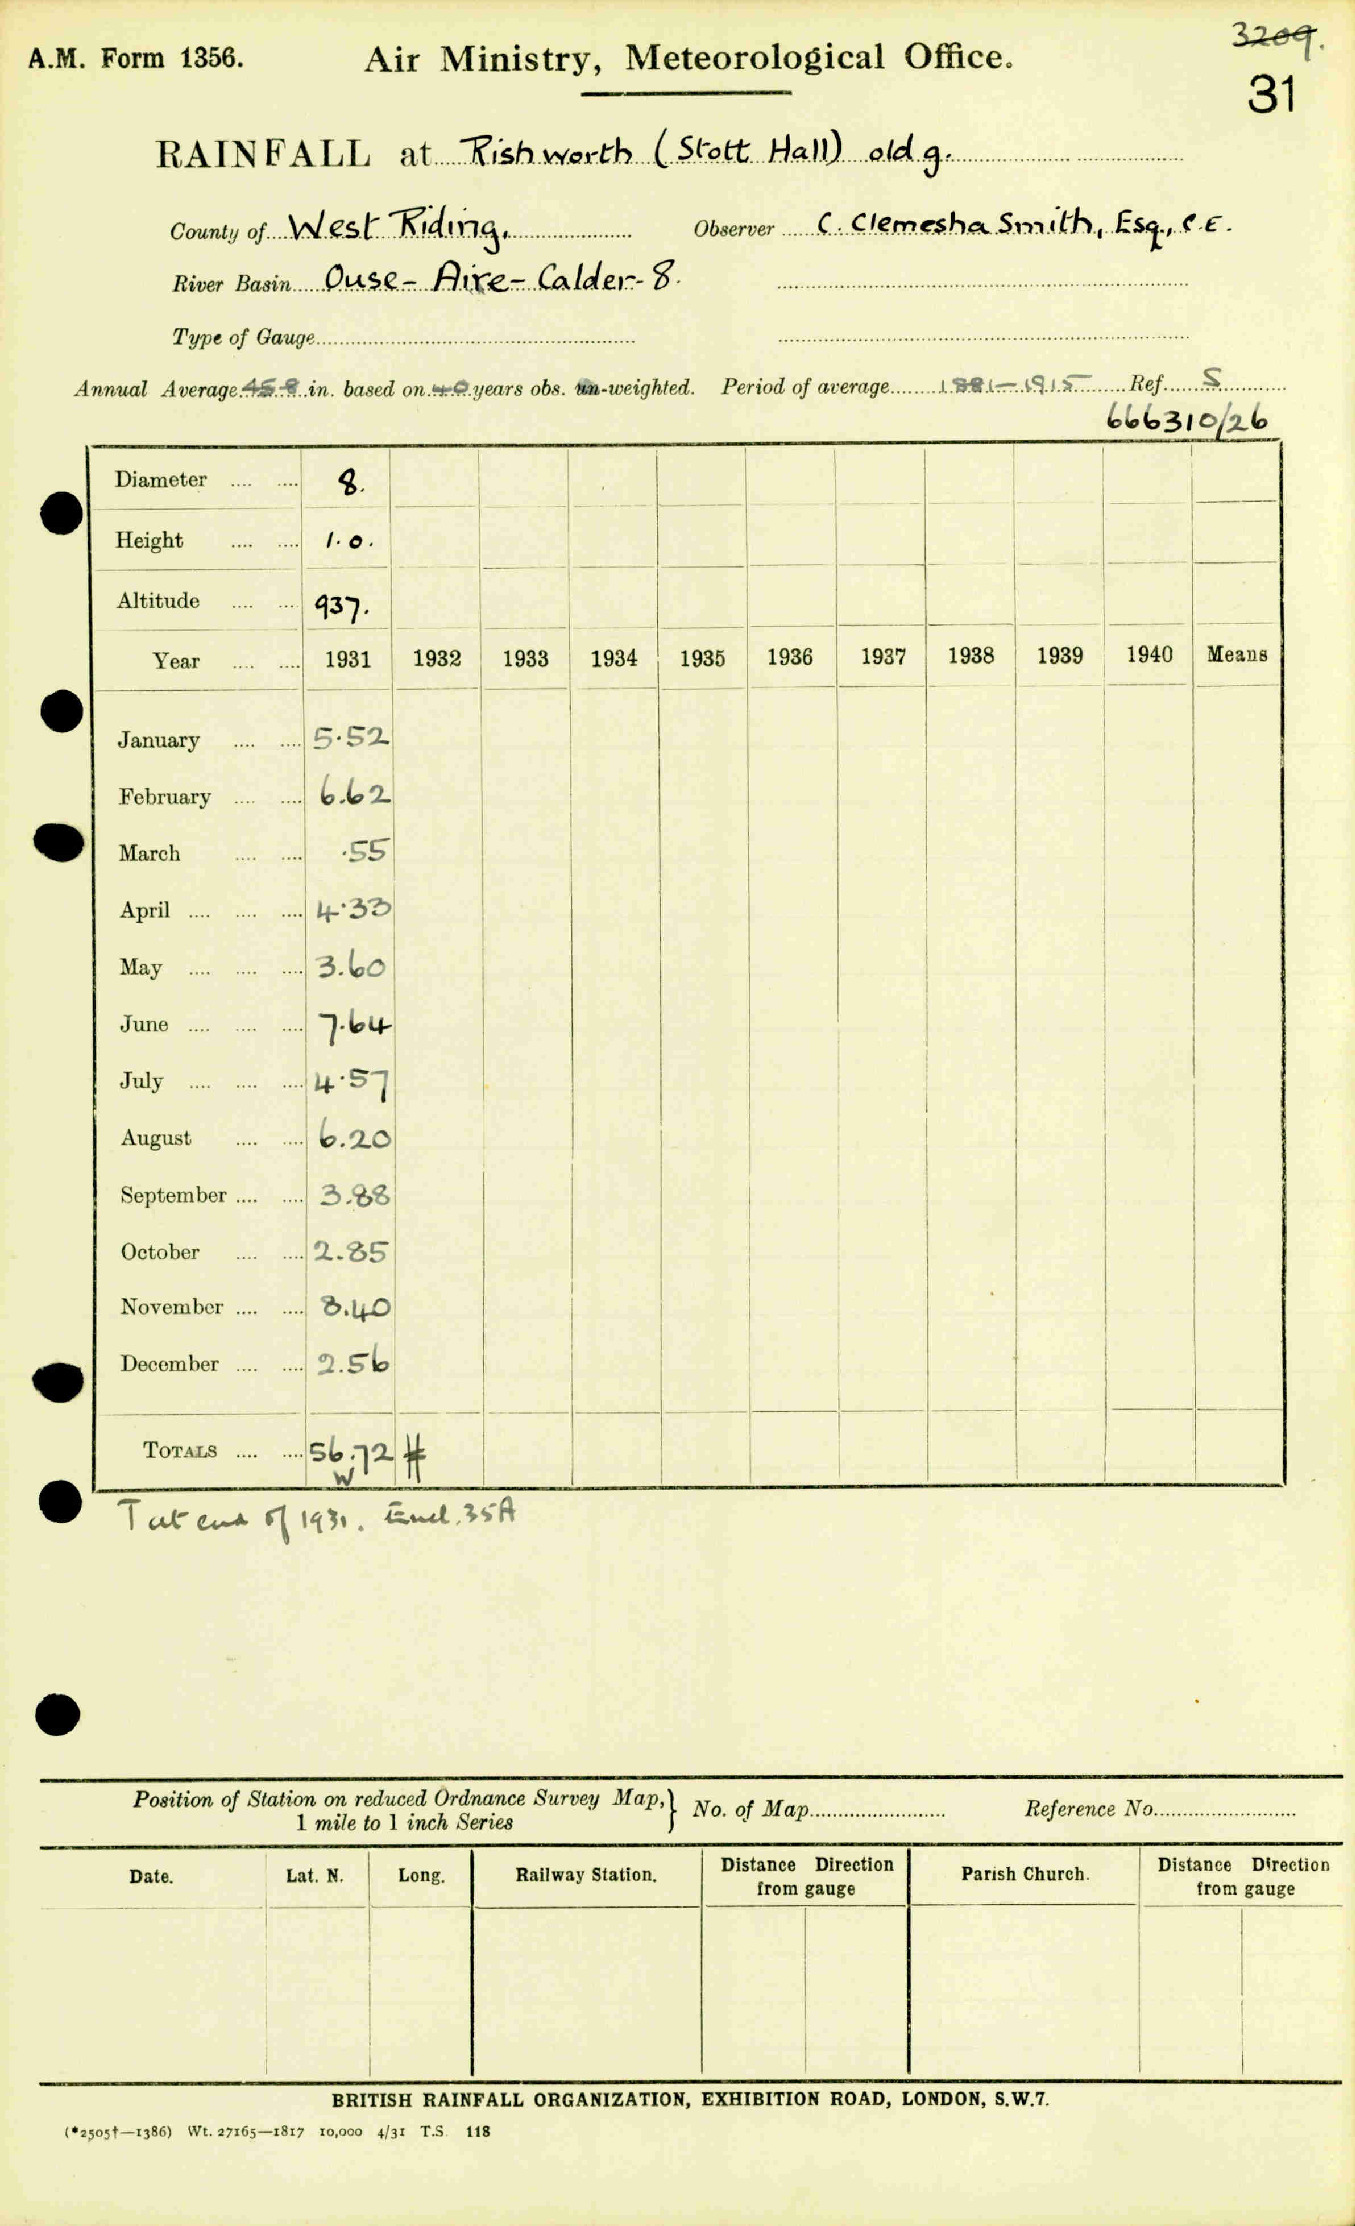 3209.
A.M. Form 1356. Air Ministry, Meteorological Office.
31
RAINFALL at Rishworth (Stott Hall) old g.
County of West Riding. Observer C. Clemesha Smith, Esq., C.E.
River Basin Ouse - Aire - Calder - 8.
Type of Gauge
Annual Average 45.8 in. based on 40 years obs. un-weighted. Period of average 1881-1915 Ref. S
666310/26
Diameter 8.
Height 1.0.
Altitude 937.
Year 1931 1932 1933 1934 1935 1936 1937 1938 1939 1940 Means
January 5.52
February 6.62
March .55
April 4.33
May 3.60
June 7.64
July 4.57
August 6.20
September 3.88
October 2.85
November 8.40
December 2.56
TOTALS 56.72 #
W
T at end of 1931. Encl. 35A
Position of Station on reduced Ordnance Survey Map, } No. of Map Reference No.
1 mile to 1 inch Series
Date. Lat. N. Long. Railway Station. Distance Direction from gauge Parish Church. Distance Direction from gauge
BRITISH RAINFALL ORGANIZATION, EXHIBITION ROAD, LONDON, S.W.7.
(*2505†—1386) Wt. 27165—1817 10,000 4/31 T.S. 118